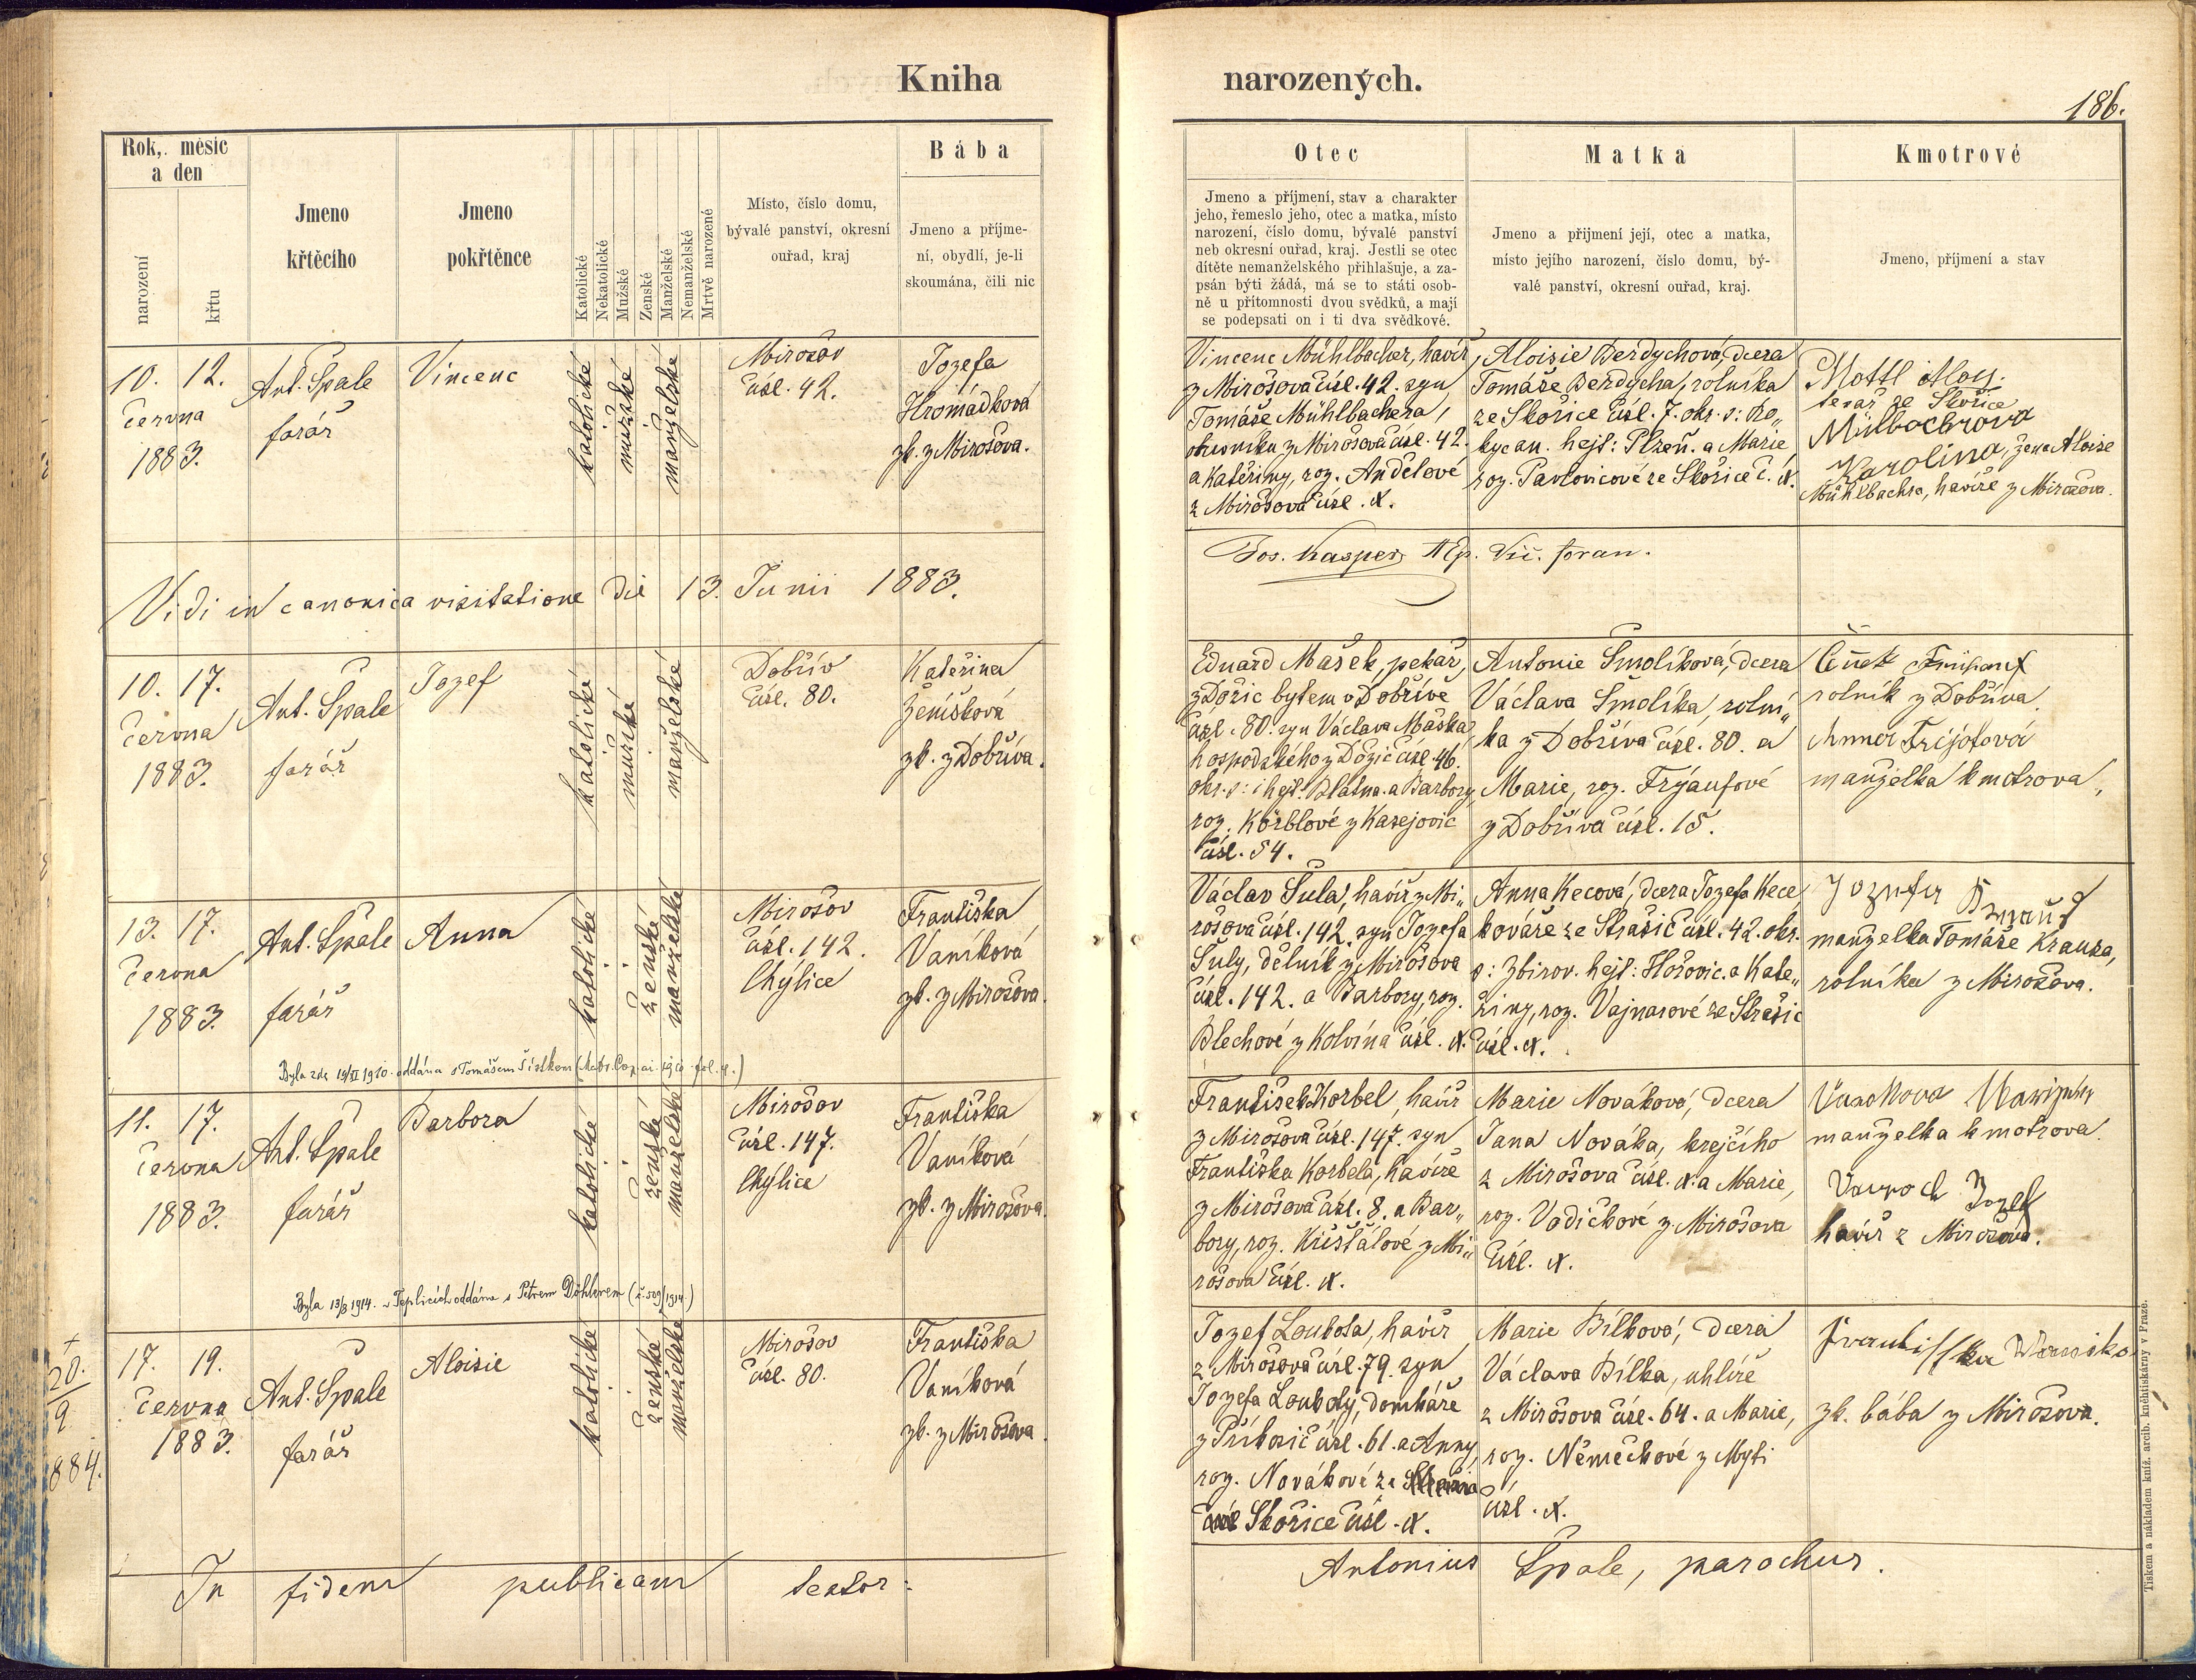 Kniha narozených.
186.
Rok, měsíc a den
narození
křtu
Jmeno křtěcího
Jmeno pokřtěnce
Katolické
Nekatolické
Mužské
Ženské
Manželské
Nemanželské
Mrtvě narozené
Místo, číslo domu,
bývalé panství, okresní
ouřad, kraj
Bába
Jmeno a příjme-
ní, obydlí, je-li
skoumána, čili nic
Otec
Jmeno a příjmení, stav a charakter
jeho, řemeslo jeho, otec a matka, místo
narození, číslo domu, bývalé panství
neb okresní ouřad, kraj. Jestli se otec
dítěte nemanželského přihlašuje, a za-
psán býti žádá, má se to státi osob-
ně u přítomnosti dvou svědků, a mají
se podepsati on i ti dva svědkové.
Matka
Jmeno a přijmení její, otec a matka,
místo jejího narození, číslo domu, bý-
valé panství, okresní ouřad, kraj.
Kmotrové
Jmeno, příjmení a stav
10. 12.
června
1883.
Ant. Špale
farář
Vincenc
katolické
mužské
manželské
Mirošov
čísl. 42.
Jozefa
Hromádková
zk. z Mirošova.
Vincenc Mühlbacher, havíř
z Mirošova čísl. 42. syn
Tomáše Mühlbachera,
obuvníka z Mirošova čísl. 42.
a Kateřiny, roz. Andělové
z Mirošova čísl. N.
Aloisie Berdychová, dcera
Tomáše Berdycha, rolníka
ze Skořice čísl. 7. okr. s: Ro„
kycan. hejt: Plzeň. a Marie
roz. Pavlovicové ze Skořice č. N.
Mottl Aloys.
tesař ze Skořice
Mülbochrova
Karolina, žena Aloise
Mühlbachra, havíře z Mirošova.
Vidi in canonica visitatione die 13. Junii 1883.
Jos. Kasper, Ep. Vic. foran.
10. 17.
června
1883.
Ant. Špale
farář
Jozef
katolické
mužské
manželské
Dobřív
čísl. 80.
Kateřina
Ženíšková
zk. z Dobříva.
Eduard Mašek, pekař,
z Dožic bytem v Dobřívě
čísl. 80. syn Václava Maška
hospodského z Dožic čísl. 46.
okr. s: i hejt: Blatna. a Barbory
roz. Korblové z Kasejovic
čísl. 54.
Antonie Smolíková, dcera
Václava Smolíka, rolní„
ka z Dobříva čísl. 80. a
Marie, roz. Frýaufové
z Dobříva čísl. 15.
rolník z Dobříva.
Anna
manželka kmotrova,
13. 17.
června
1883.
Ant. Špale
farář
Anna
katolické
ženské
manželské
Mirošov
čísl. 142.
Chýlice
Františka
Vaníková
zk. z Mirošova.
Václav Šula, havíř z Mi„
rošova čísl. 142. syn Jozefa
Šuly, dělník z Mirošova
čísl. 142. a Barbory, roz.
Blechové z Kolvína čísl. N.
Anna Kecová, dcera Jozefa Kece
kováře ze Strašic čísl. 42. okr.
s: Zbirov. hejt: Hořovic. a Kate„
řiny, roz. Vajnarové ze Strašic
čísl. N.
Jozefa
manželka Tomáše Krausa,
rolníka z Mirošova.
Byla zde 1910 oddána s Tomášem
11. 17.
června
1883.
Ant. Špale
farář
Barbora
katolické
ženské
manželské
Mirošov
čísl. 147.
Chýlice
Františka
Vaníková
zk. z Mirošova.
František Korbel, havíř
z Mirošova čísl. 147. syn
Františka Korbela, havíře
z Mirošova čísl. 8. a Bar„
bory, roz. Křišťálové z Mi„
rošova čísl. N.
Marie Nováková, dcera
Jana Nováka, krejčího
z Mirošova čísl. N. a Marie,
roz. Vodičkové z Mirošova
čísl. N.
manželka kmotrova.
Jozef
havíř z Mirošova.
Byla 13/3 1914. v Teplicích oddána s Petrem Döhlerem
+
20.
9
884.
17. 19.
června
1883.
Ant. Špale
farář
Aloisie
katolické
ženské
manželské
Mirošov
čísl. 80.
Františka
Vaníková
zk. z Mirošova.
Jozef Loubota, havíř
z Mirošova čísl. 79. syn
Jozefa Louboty, domkáře
z Příkosic čísl. 61. a Anny,
roz. Novákové ze
Skořice čísl. N.
Marie Bílková, dcera
Václava Bílka, uhlíře
z Mirošova čísl. 64. a Marie,
roz. Němečkové z Mýti
čísl. N.
Františka
zk. bába z Mirošova.
In fidem publicam testor:
Antonius Špale, parochus.
Tiskem a nákladem kníž. arcib. knihtiskárny v Praze.